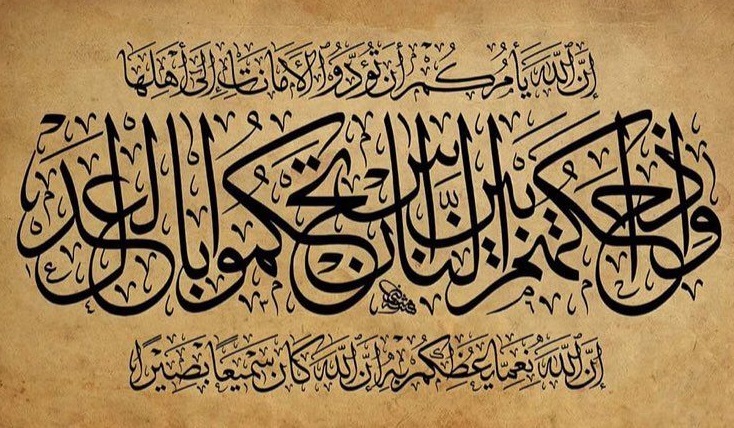 إِنَّ ٱللَّهَ يَأْمُرُكُمْ أَنْ تُؤَدُّوا ٱلْأَمَانَاتِ إِلَىٰ أَهْلِهَا
وَإِذَا حَكَمْتُمْ بَيْنَ ٱلنَّاسِ أَنْ تَحْكُمُوا بِٱلْعَدْلِ
إِنَّ ٱللَّهَ نِعِمَّا يَعِظُكُمْ بِهِ إِنَّ ٱللَّهَ كَانَ سَمِيعًا بَصِيرًا